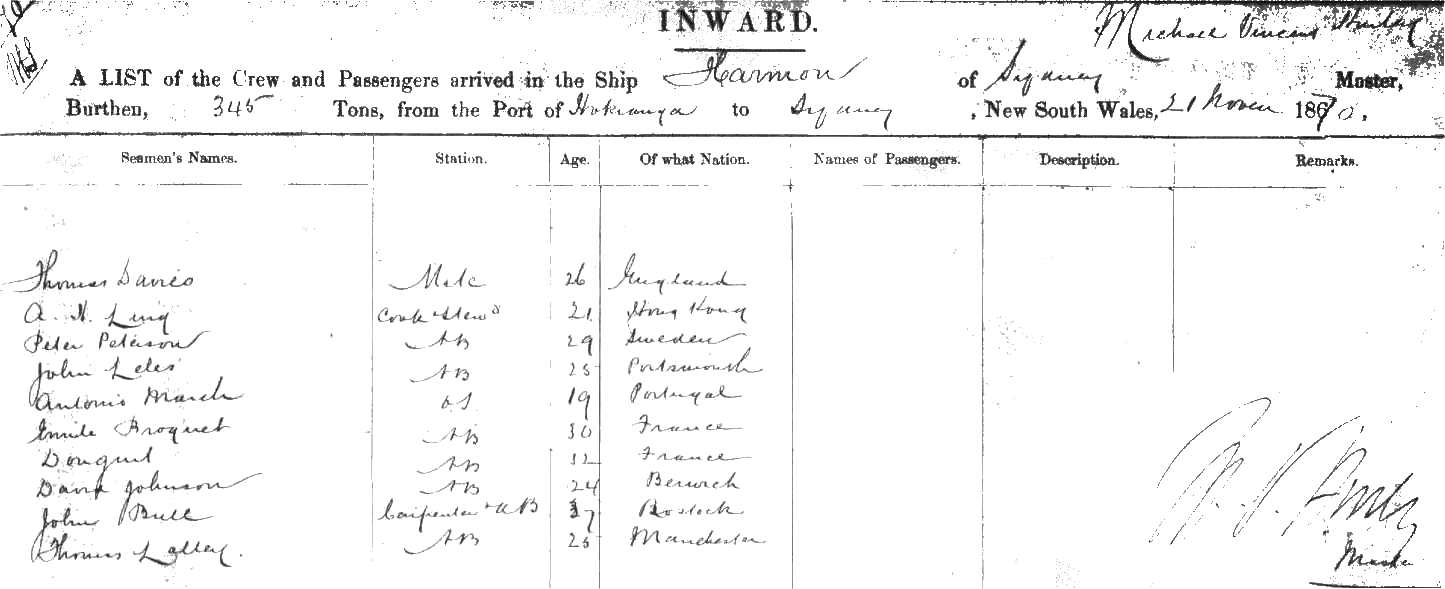 INWARD.
Michael Vincent
A LIST of the Crew and Passengers arrived in the Ship Harmon of Sydney Master,
Burthen, 345 Tons, from the Port of Hokianga to Sydney, New South Wales, 21 Novem 1870.
Seamen's Names. Station. Age. Of what Nation. Names of Passengers. Description. Remarks.
Thomas Davies Mate 26 England
A. H. Ling Cook & Stewd 21 Hong Kong
Peter Peterson AB 29 Sweden
John AB 25 Portsmouth
Antonio March OS 19 Portugal
Emile Broquet AB 30 France
AB 32 France
David Johnson AB 24 Berwick
John Bull Carpenter & AB Rostock
Thomas AB 25 Manchester
M. V.
Master